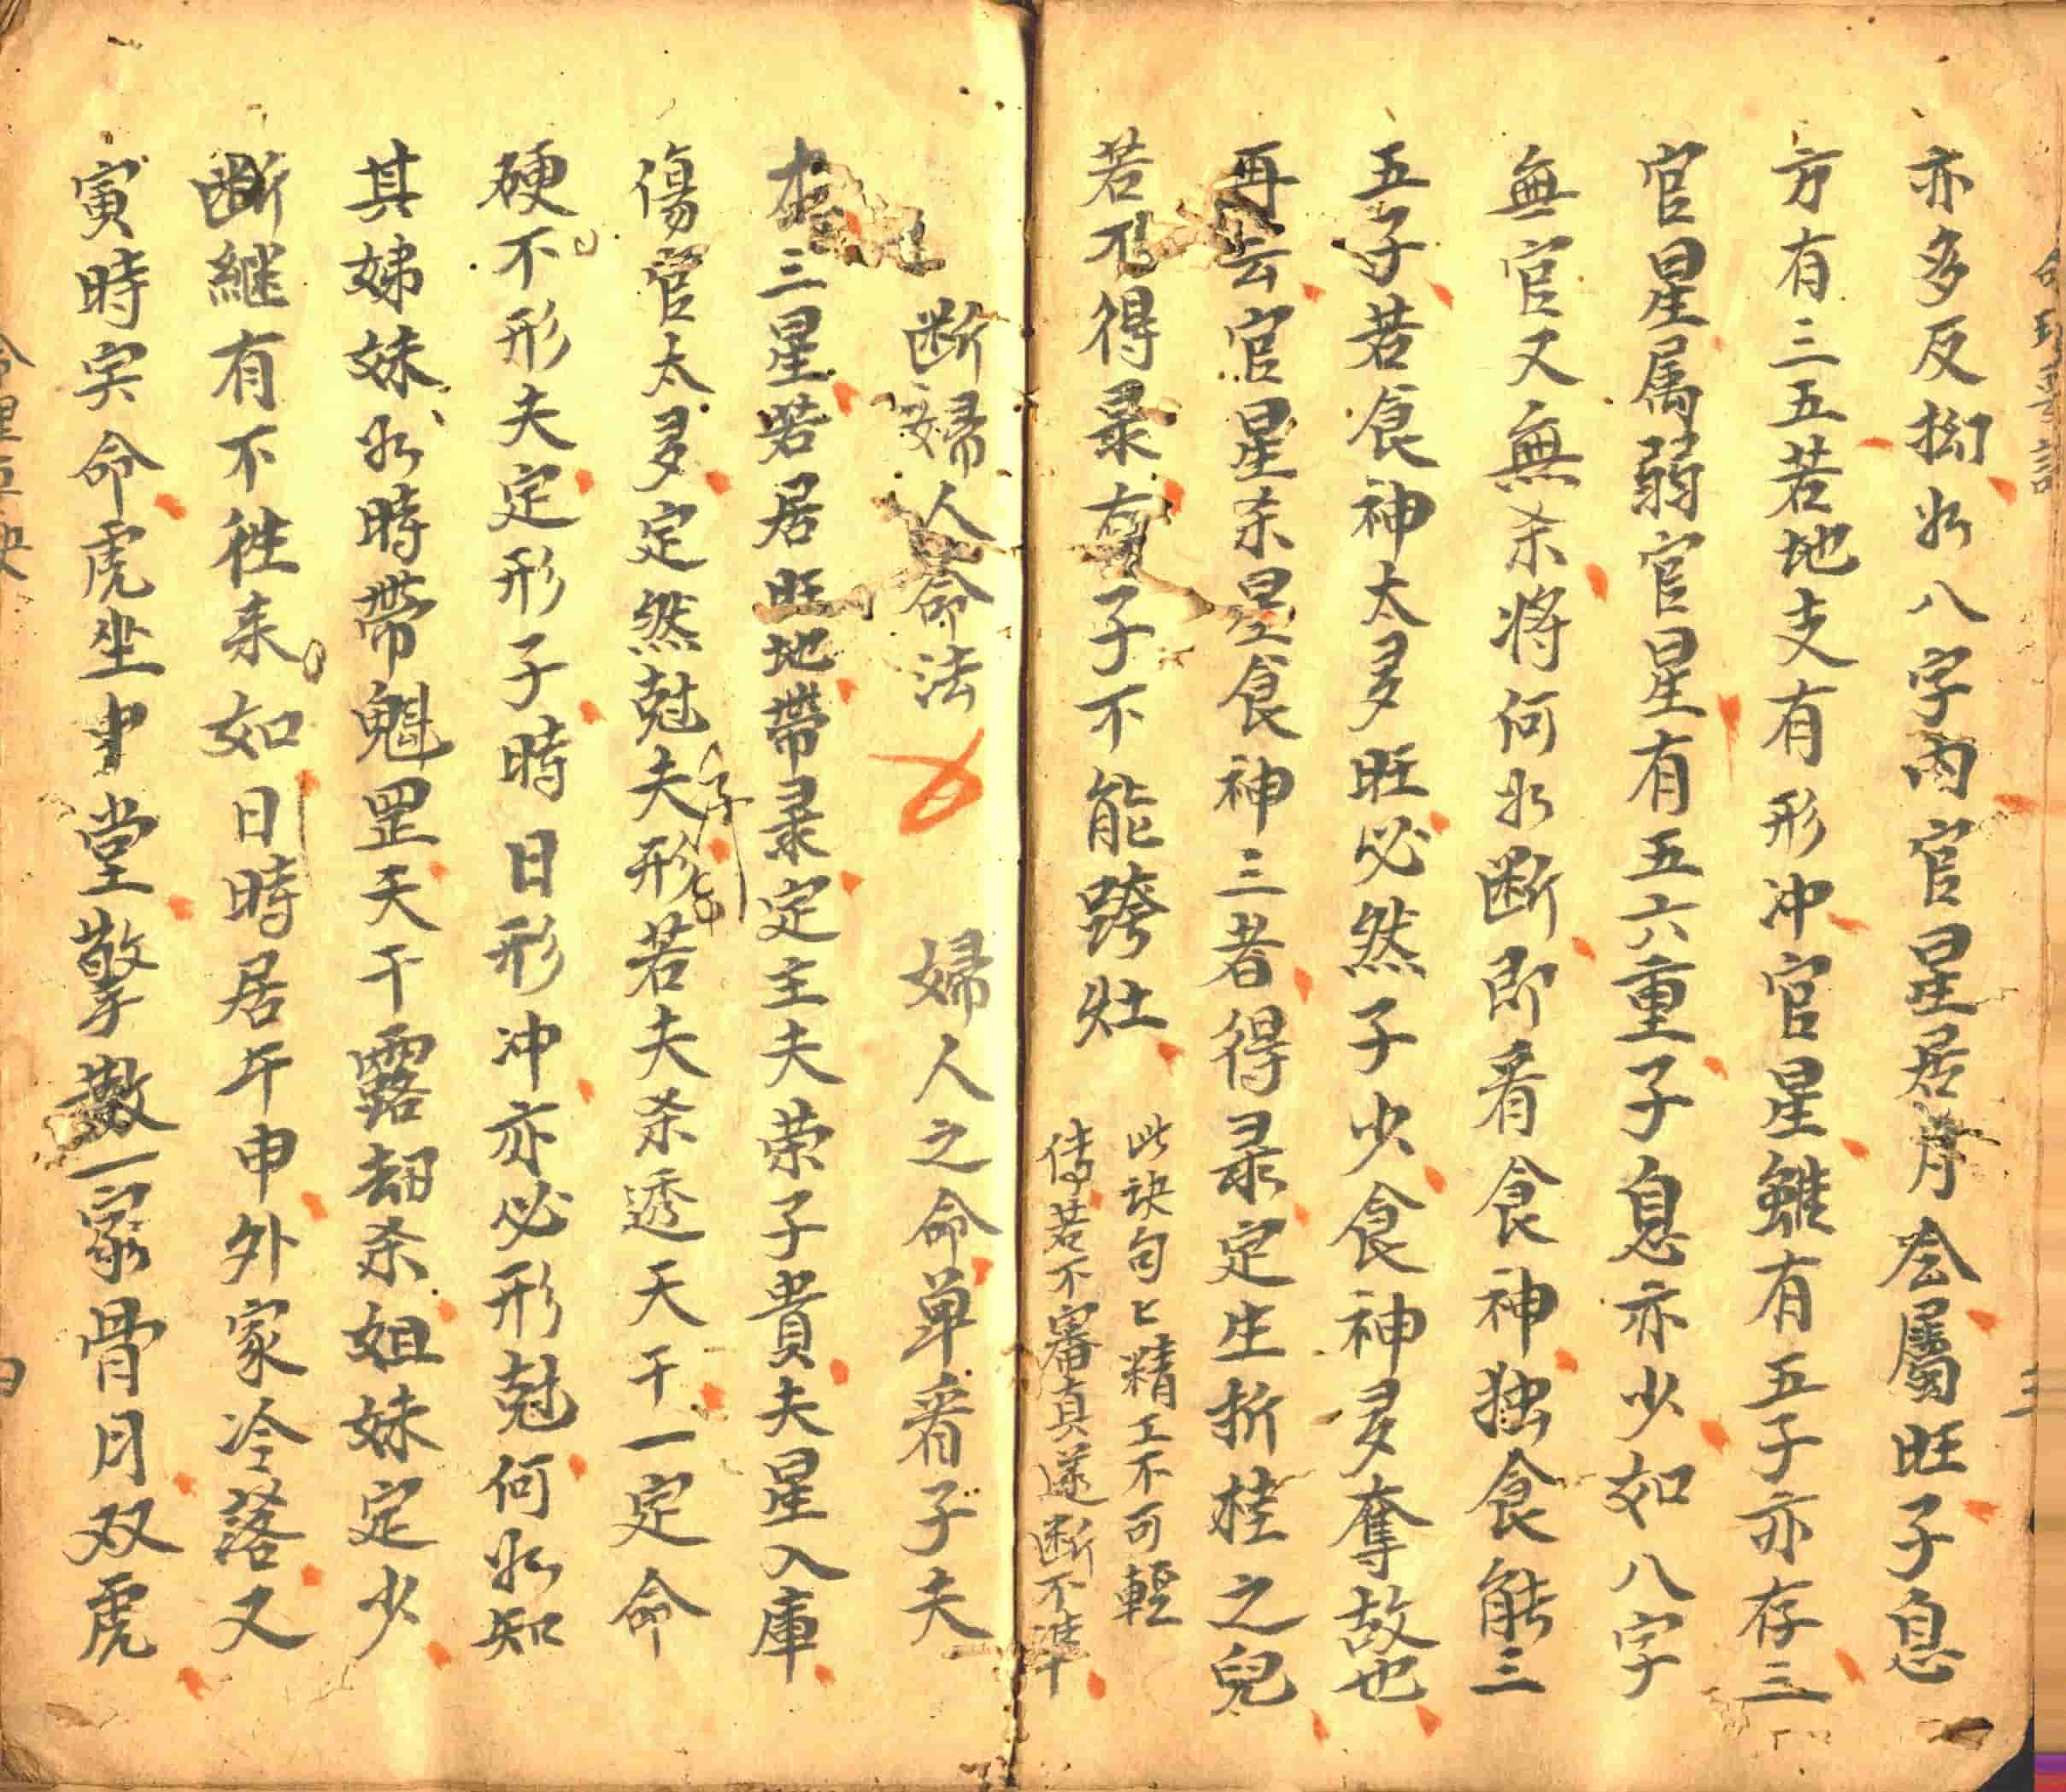 亦多反拗水八字内官星居月令屬旺子息
方有三五若地支有形冲官星雖有五子亦存三
官星属弱官星有五六重子息亦少如八字
無官又無杀将何以断即看食神独食能三
五子若食神太多旺必然子少食神多奪故也
再云官星杀星食神三者得录定生折桂之兒
若不得录有子不能跨灶
此訣句匕精工不可輕
傳若不審真遂断不準
断婦人命法
婦人之命单看子夫
三星若居旺地帶录定主夫荣子貴夫星入庫
傷官太多定然尅夫形子若夫杀透天干一定命
硬不形夫定形子時日形冲亦必形尅何以知
其娣妹以時帶魁罡天干露刼杀姐妹定少
断継有不徃来如日時居年申外家冷落又
寅時実命虎坐中堂擎散一家骨月双虎